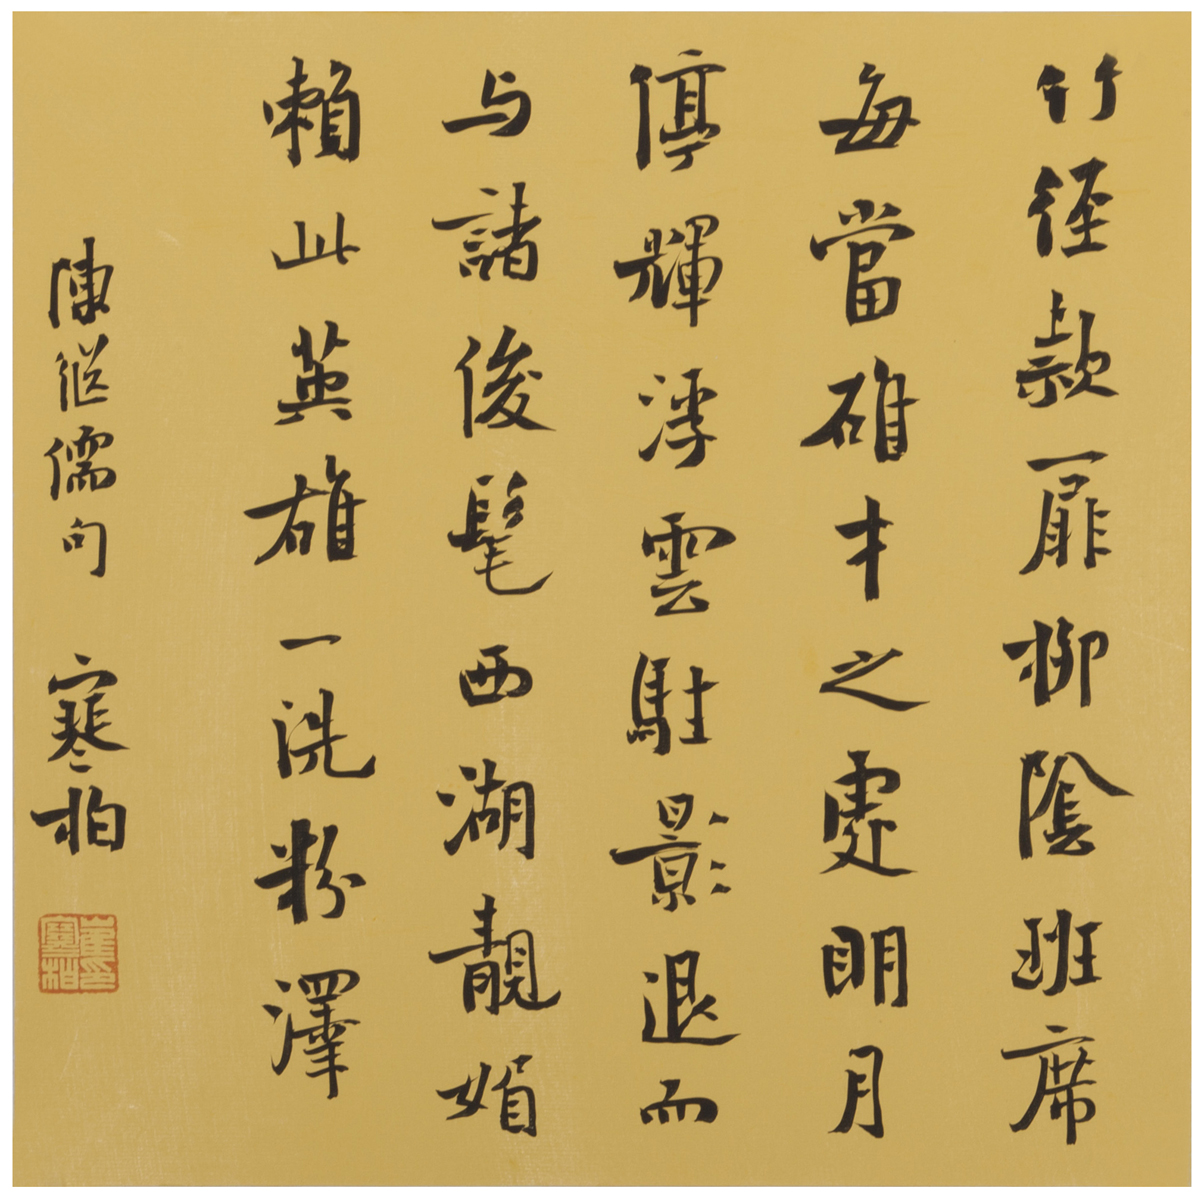 竹徑款扉柳陰班席
每當雄才之處明月
停輝浮雲駐影退而
与諸俊髦西湖靚媚
賴此英雄一洗粉澤
陳継儒句 寒柏
崔印寒柏